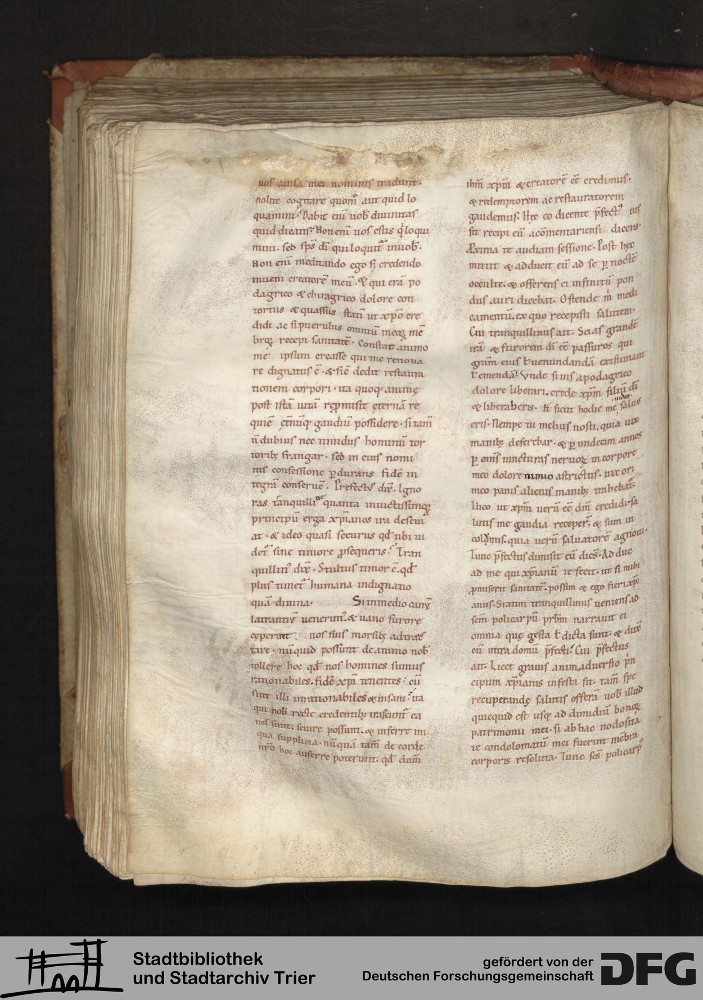 uos causa mei nominis tradunt.
nolite cogitare quom̄ aut quid lo
quamini. Dabit eni uob diuinitas
quid dicatis. Non enī uos estis q̄ loqui
mini. sed sp̄s dī qui loquit̄ in uob.
Non enī meditando ego sȝ credendo
inueni creatorē meū. & qui erā po
dagrico & chiragrico dolore con
tortus & quassus statī ut xp̄o cre
didi ac si puerulus omniū
brȝ recepi sanitatē. Constat animo
me ipsum creasse qui me renoua
re dignatus ē. & sic dedit restaura
tionem corpori. ita quoq; animę
post istā uitā repmisit eternā re
quiē gaudiū possidere. si tam̄
n̄ dubius nec timidus hominū tor
torib; frangar. sed in eius nomi
nis confessione pdurans fidē in
tegrā conseruē. Prefect͛ dix̄. Igno
ras tranquilline quanta inuictissimoȝ
principū erga xp̄ianos ira deseui
at. & ideo quasi securus qd̄ tibi ui
det̄ sine timore pseq̄ris. Tran
quillin͛ dix̄. Stultus timor ē. qd̄
plus timet̄ humana indignatio
quā diuina. Si in medio canū
latrantiū uenerint. & uano furore
ceperint nos suis morsib;
tare. nūquid possunt de animo nob̄
tollere hoc qd̄ nos homines sumus
rationabiles. fidē xp̄i tenentes. cū
sint illi irrationabiles & insani. ita
qui nob recte credentib; irascunt̄ ca
nes sunt. seuire possunt. & inferre in
qua supplicia. nūquā tam̄ de corde
nr̄o hoc auferre poterunt. qd̄ dn̄m
ihm̄ xp̄m & creatorē eē credimus.
& redemptorem ac restauratorem
gaudemus. Hęc eo dicente p̄fect͛ ius
sit recipi eū a cōmentariensi dicens.
Proxima te audiam sessione. Post hęc
mittit & adducit eū ad se p noctē
occulte. & offerens ei infinitū pon
dus auri dicebat. Ostende m̄ medi
camentū. ex quo recepisti salutem.
Cui tranquillinus ait. Scias grandē
irā & furorem dī eē passuros qui
gratiam eius ł uenundandā existimant
ł emendā. Vnde si uis a podagrico
dolore liberari. crede xp̄m filiū dī
& liberaberis. & sic fecit hodie me saluū
eris. Nempe ut melius nosti. quia uix
manib; deferebar. & p undecim annos
p om̄s iuncturas neruoȝ in corpore
meo dolore nimio astrictus. ut ori
meo panis alienis manib; trahebat̄.
Ilico ut xp̄m uerū eē dm̄ credidi. sa
lutis me gaudia recepert̄. & sum in
colomis. quia uerū saluatorē agnoui.
Tunc p̄fectus dimisit eū dicēs. Ad duc
ad me qui xp̄ianū te fecit. ut si mihi
pmiserit sanitatē. possim & ego fieri xp̄i
anus. Statim tranquillinus ueniens ad
sc̄m policarpū pr̄bm narrauit ei
omnia que gesta ł dicta sunt. & duxit
eū intra domū p̄fecti. Cui p̄fectus
ait. Licet grauis animaduersio prin
cipum xp̄ianis infesta sit. tam̄ spē
recuperande salutis offerā uob illud
quicquid est usq; ad dimidiū bonoȝ
patrimonii mei. si ab hac nodosita
te condolomatū mei fuerint mēbra
corporis resoluta. Tunc sc̄s policarp͛
Stadtbibliothek
und Stadtarchiv Trier
gefördert von der
Deutschen Forschungsgemeinschaft
DFG